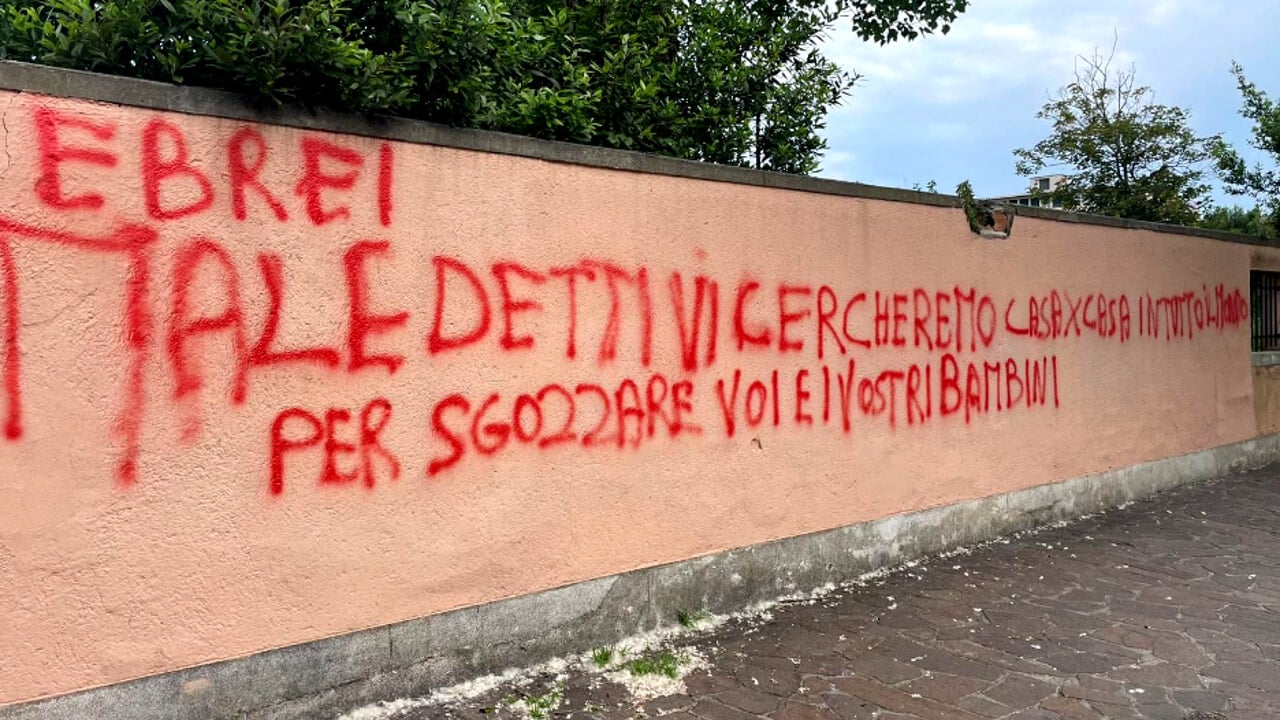 EBREI
MALEDETTI VI CERCHEREMO CASAXCASA IN TUTTO IL MONDO
PER SGOZZARE VOI E I VOSTRI BAMBINI